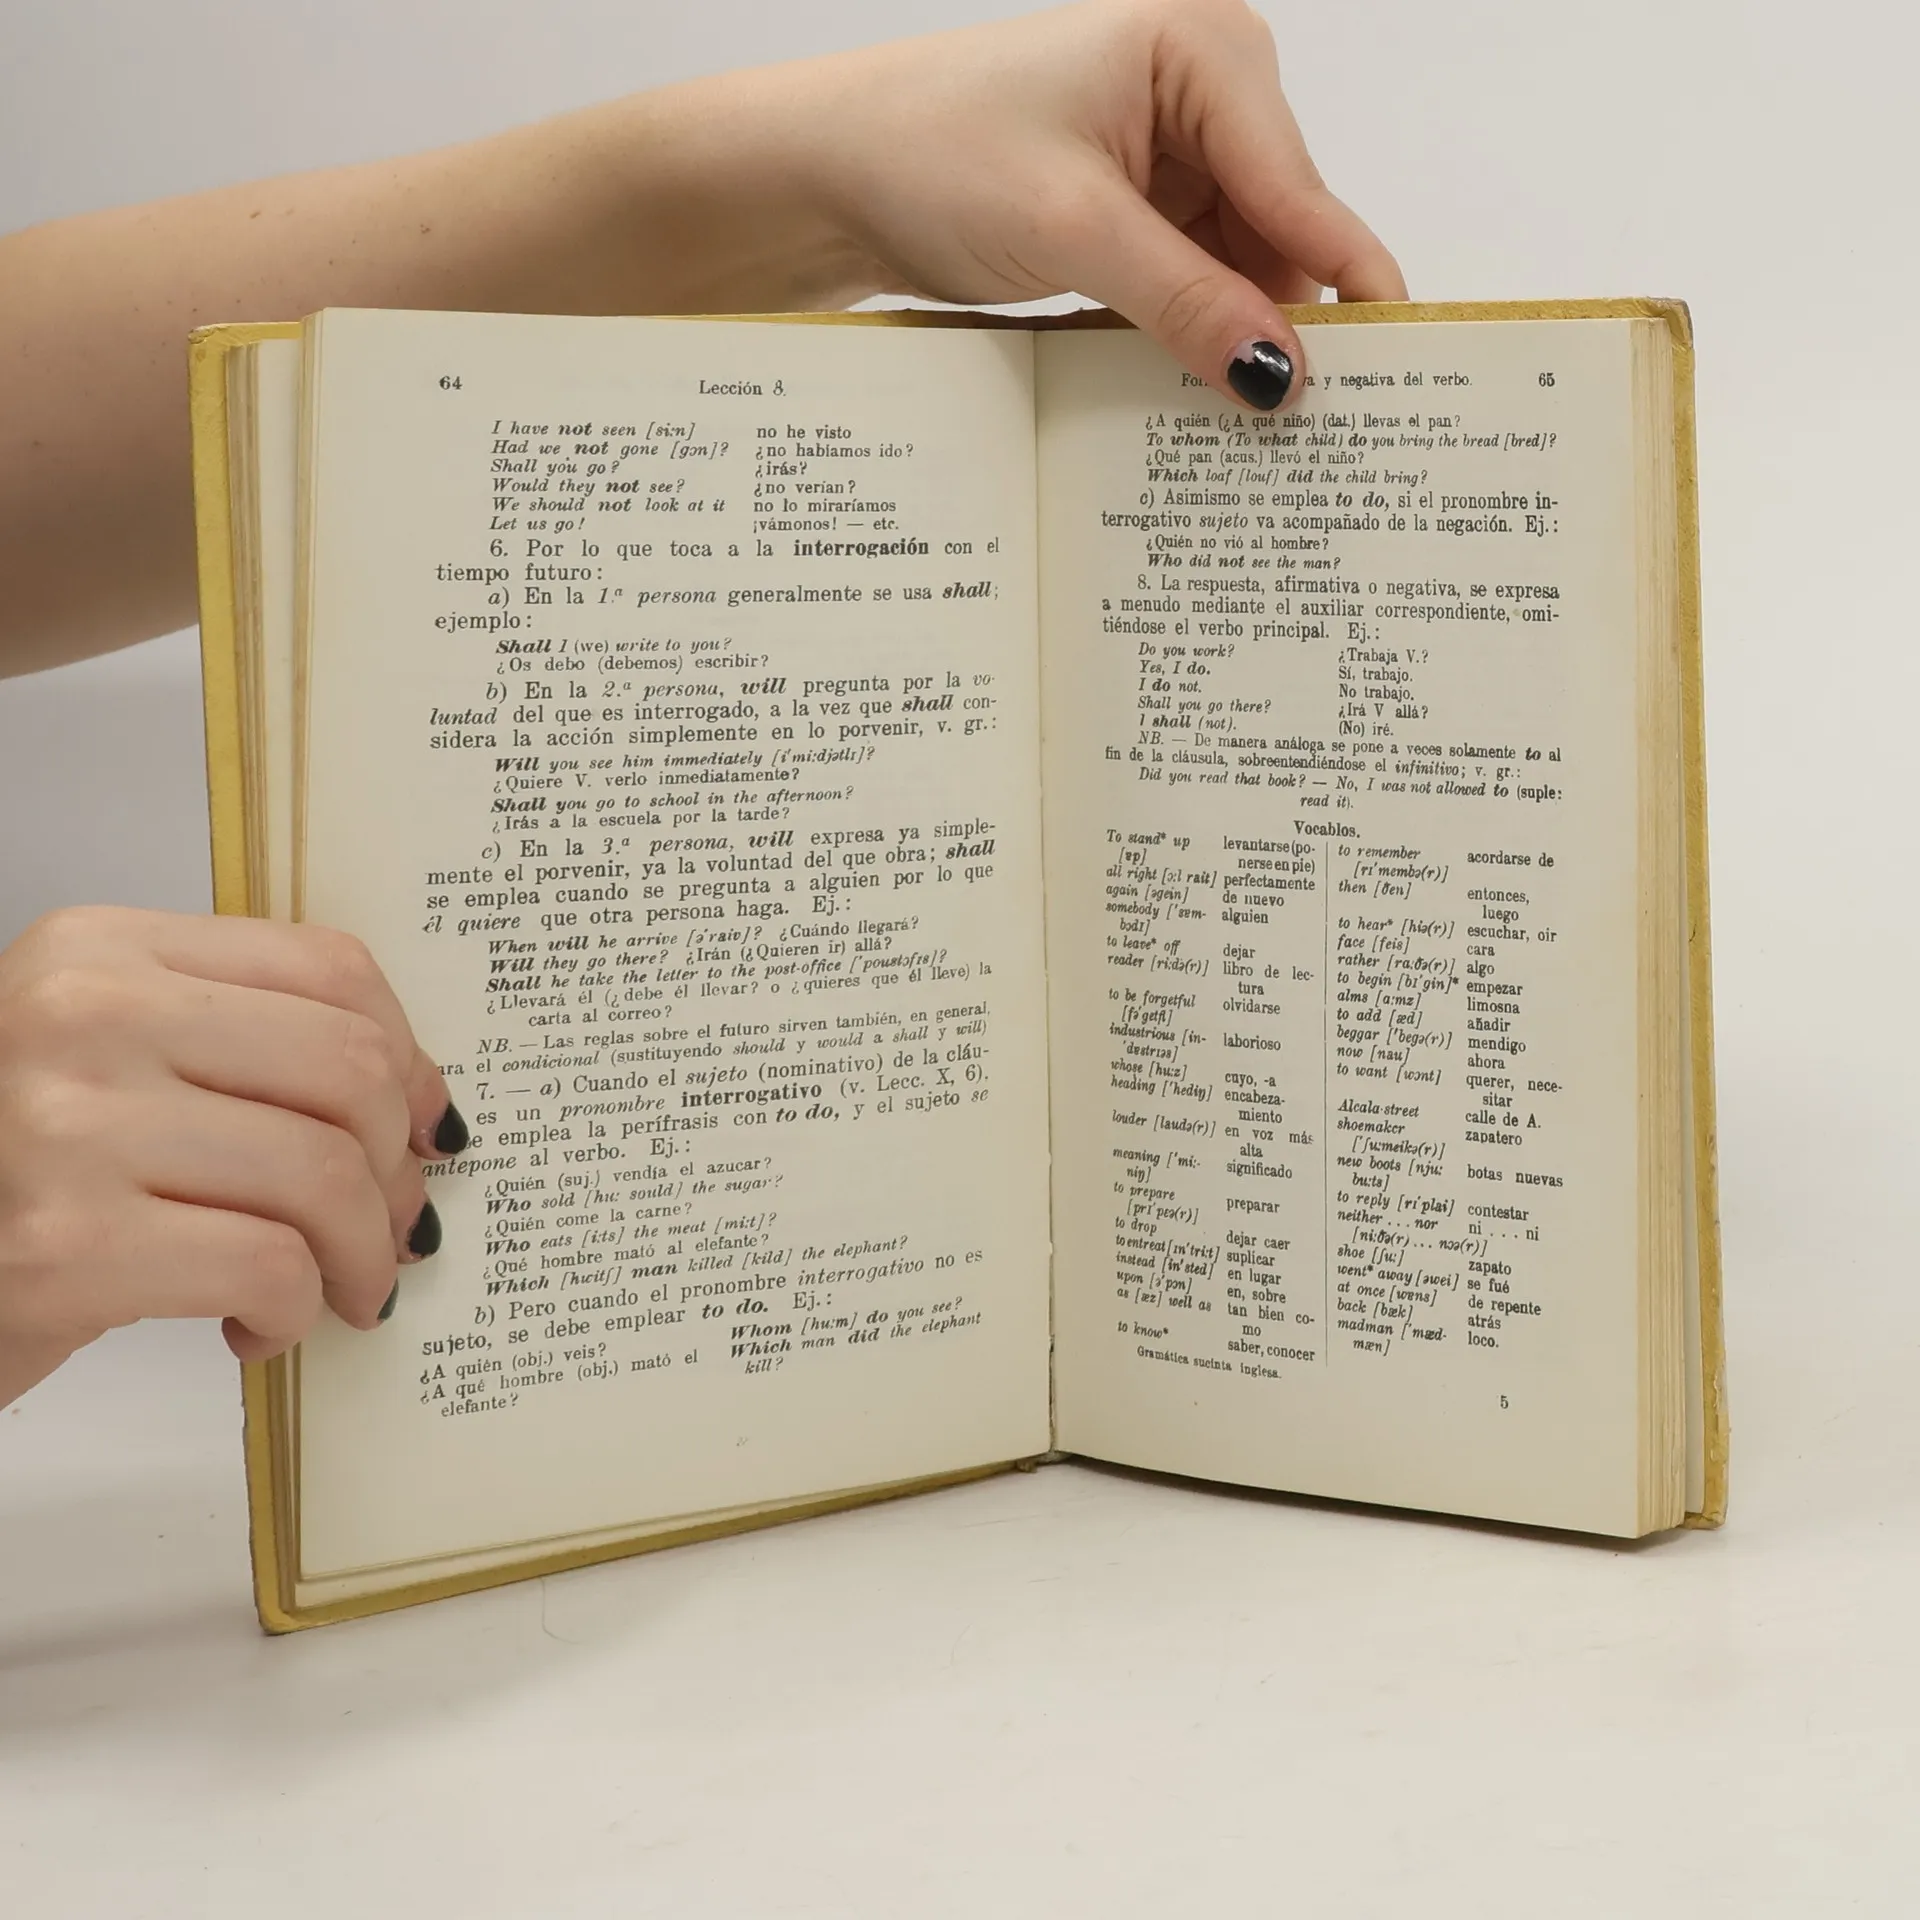 64
Lección 8.
I have not seen [si:n] no he visto
Had we not gone [gɔn]? ¿no habíamos ido?
Shall you go? ¿irás?
Would they not see? ¿no verían?
We should not look at it no lo miraríamos
Let us go! ¡vámonos! — etc.
6. Por lo que toca a la interrogación con el
tiempo futuro:
a) En la 1.ª persona generalmente se usa shall;
ejemplo:
Shall I (we) write to you?
¿Os debo (debemos) escribir?
b) En la 2.ª persona, will pregunta por la vo-
luntad del que es interrogado, a la vez que shall con-
sidera la acción simplemente en lo porvenir, v. gr.:
Will you see him immediately [i'mi:djətlɪ]?
¿Quiere V. verlo inmediatamente?
Shall you go to school in the afternoon?
¿Irás a la escuela por la tarde?
c) En la 3.ª persona, will expresa ya simple-
mente el porvenir, ya la voluntad del que obra; shall
se emplea cuando se pregunta a alguien por lo que
él quiere que otra persona haga. Ej.:
When will he arrive [ə'raiv]? ¿Cuándo llegará?
Will they go there? ¿Irán (¿Quieren ir) allá?
Shall he take the letter to the post-office ['poustɔfɪs]?
¿Llevará él (¿debe él llevar? o ¿quieres que él lleve) la
carta al correo?
NB. — Las reglas sobre el futuro sirven también, en general,
ara el condicional (sustituyendo should y would a shall y will)
7. — a) Cuando el sujeto (nominativo) de la cláu-
es un pronombre interrogativo (v. Lecc. X, 6),
se emplea la perífrasis con to do, y el sujeto se
antepone al verbo. Ej.:
¿Quién (suj.) vendía el azucar?
Who sold [hu: sould] the sugar?
¿Quién come la carne?
Who eats [i:ts] the meat [mi:t]?
¿Qué hombre mató al elefante?
Which [hwitʃ] man killed [kild] the elephant?
b) Pero cuando el pronombre interrogativo no es
sujeto, se debe emplear to do. Ej.:
¿A quién (obj.) veis? Whom [hu:m] do you see?
¿A qué hombre (obj.) mató el Which man did the elephant
elefante? kill?
For y negativa del verbo. 65
¿A quién (¿A qué niño) (dat.) llevas el pan?
To whom (To what child) do you bring the bread [bred]?
¿Qué pan (acus.) llevó el niño?
Which loaf [louf] did the child bring?
c) Asimismo se emplea to do, si el pronombre in-
terrogativo sujeto va acompañado de la negación. Ej.:
¿Quién no vió al hombre?
Who did not see the man?
8. La respuesta, afirmativa o negativa, se expresa
a menudo mediante el auxiliar correspondiente, omi-
tiéndose el verbo principal. Ej.:
Do you work? ¿Trabaja V.?
Yes, I do. Sí, trabajo.
I do not. No trabajo.
Shall you go there? ¿Irá V allá?
I shall (not). (No) iré.
NB. — De manera análoga se pone a veces solamente to al
fin de la cláusula, sobreentendiéndose el infinitivo; v. gr.:
Did you read that book? — No, I was not allowed to (suple:
read it).
Vocablos.
To stand* up levantarse (po-
[ɐp] nerse en pie)
all right [ɔ:l rait] perfectamente
again [əgein] de nuevo
somebody ['sɐm- alguien
bɔdɪ]
to leave* off dejar
reader [ri:də(r)] libro de lec-
tura
to be forgetful olvidarse
[fə'getfl]
industrious [in- laborioso
'dɐstrɪəs]
whose [hu:z] cuyo, -a
heading ['hedɪŋ] encabeza-
miento
louder [laudə(r)] en voz más
alta
meaning ['mi:- significado
nɪŋ]
to prepare preparar
[prɪ'pɛə(r)]
to drop dejar caer
to entreat [ɪn'tri:t] suplicar
instead [in'sted] en lugar
upon [ə'pɔn] en, sobre
as [æz] well as tan bien co-
mo
to know* saber, conocer
to remember acordarse de
[rɪ'membə(r)]
then [ðen] entonces,
luego
to hear* [hiə(r)] escuchar, oir
face [feis] cara
rather [ra:ðə(r)] algo
to begin [bɪ'gin]* empezar
alms [a:mz] limosna
to add [æd] añadir
beggar ['begə(r)] mendigo
now [nau] ahora
to want [wɔnt] querer, nece-
sitar
Alcala-street calle de A.
shoemaker zapatero
['ʃu:meikə(r)]
new boots [nju: botas nuevas
bu:ts]
to reply [rɪ'plai] contestar
neither ... nor ni ... ni
[ni:ðə(r) ... nɔə(r)]
shoe [ʃu:] zapato
went* away [əwei] se fué
at once [wɐns] de repente
back [bæk] atrás
madman ['mæd- loco.
mæn]
Gramática sucinta inglesa.
5